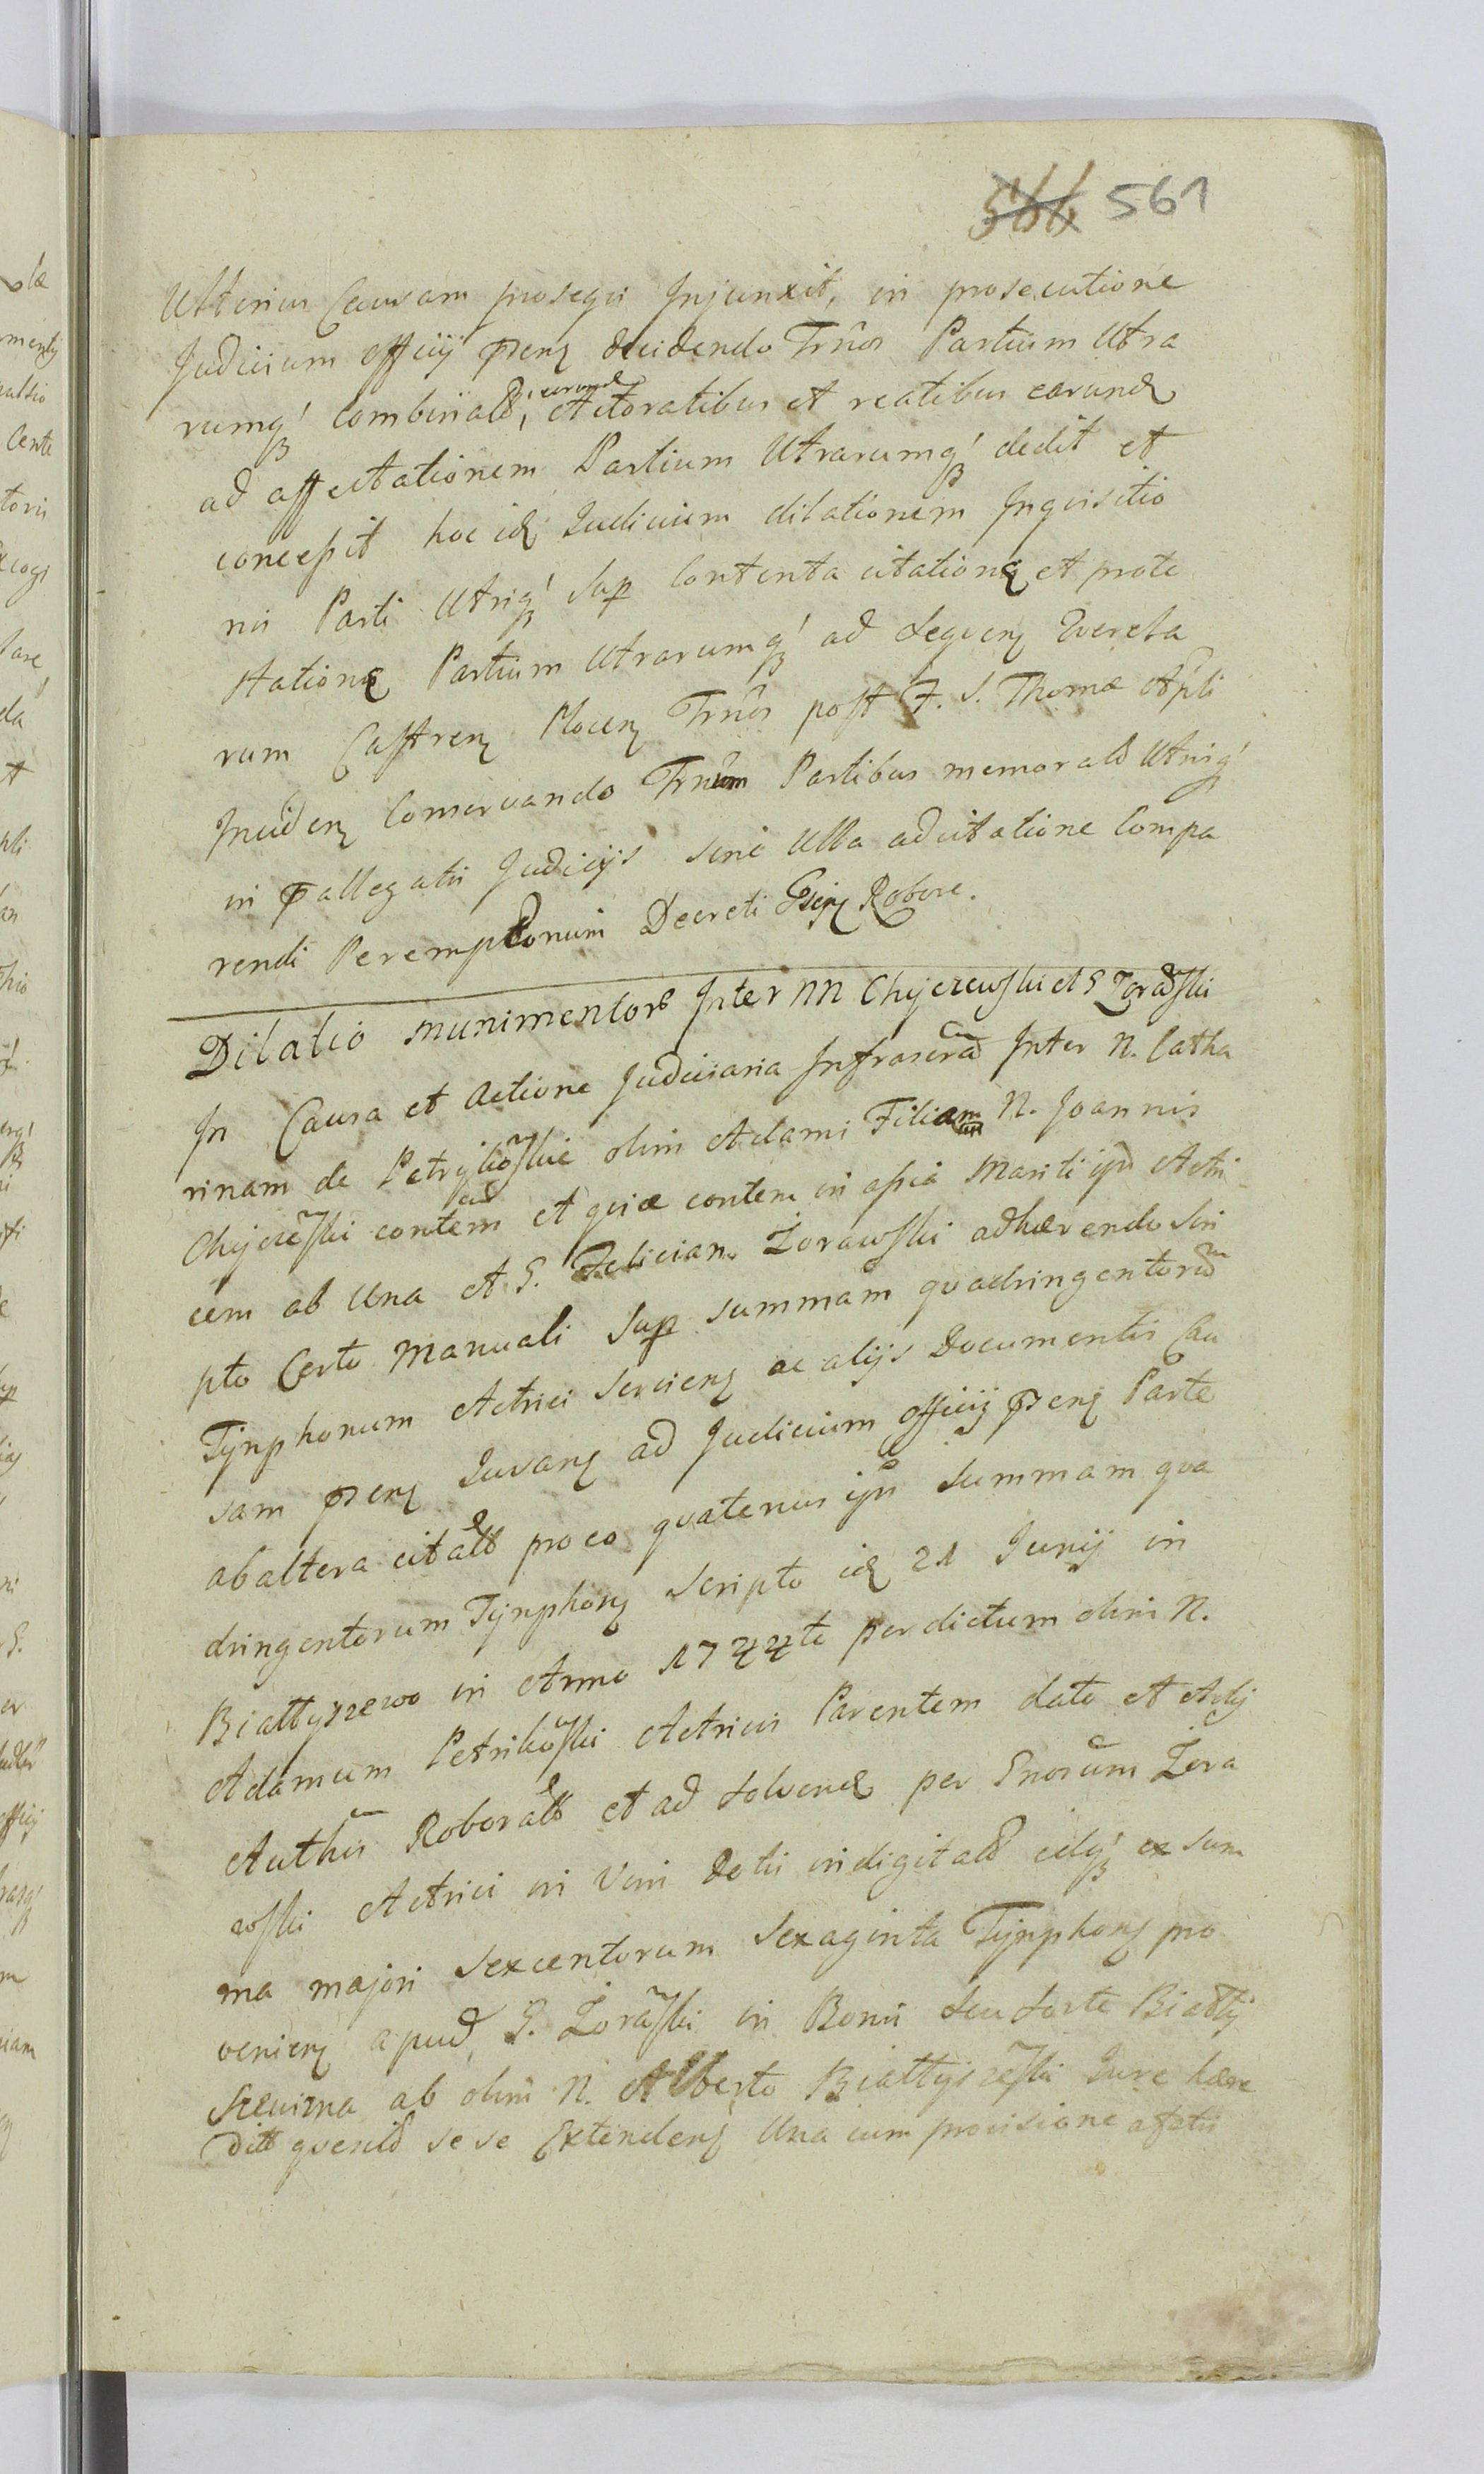 566 561
Ulterius Causam prosequi Injunxit, in prosecutione
Judicium officij pñs decidendo Trños Partium Utra
rumqȝ combinatos, eorund Actoratibus et reatibus earund
ad affectationem Partium Utrarumqȝ dedit et
concessit hoc id Judicium dilationem Inquisitio
nis Parti Utriqȝ Sup Contenta citationũ et prote
stationũ Partium Utrarumqȝ ad Sequenȝ Querela
rum Castrenȝ Plocenȝ Trños post F. S. Thomæ Apli
Inciden Conservando Trñum Partibus memorat Utriqȝ
in pallegatis Judicijs sine Ulla adcitatione Compa
rendi Peremptorium Decreti Robore.
Dilatio munimentor Inter NN Chyczewski et G Zorawski
In Causa et Actione Judiciaria Infrascrã Inter N. Catha
rinam de Petrykõskie olim Adami Filiam N. Joannis
Chyczeski contem et quiæ contem in assia Mariti ipsi Actri
cem ab Una et G. Felician Zorawski adhærendo Scri
pto Certo Manuali Sup summam quadringentorũ
Tynphonum Actrici Servienȝ ac alijs Documentis Cau
sam pñs Juvanȝ ad Judicium officij pñs Parte
ab altera citatũ pro eo quatenus ipsi Summam qua
dringentorum Tynphonȝ Scripto id 21 Junij in
Bialtyszewo in Anno 1744to per dictum olim N.
Adamum Petrikõski Actricis Parentem dato et Actis
Authis Roborat et ad Solvend per Gnosum Zora
wski Actrici in Vim Dotis indigitat eidqȝ ex Sum
ma majori Sexcentorum Sexaginta Tynphonȝ pro
venienȝ apud G. Zorãski in Bonis Seu Sorte Bialty
szewizna ab olim N. Alberto Bialtyszeski Jure hære
dit quesit se se Extendenȝ Una cum provisione a